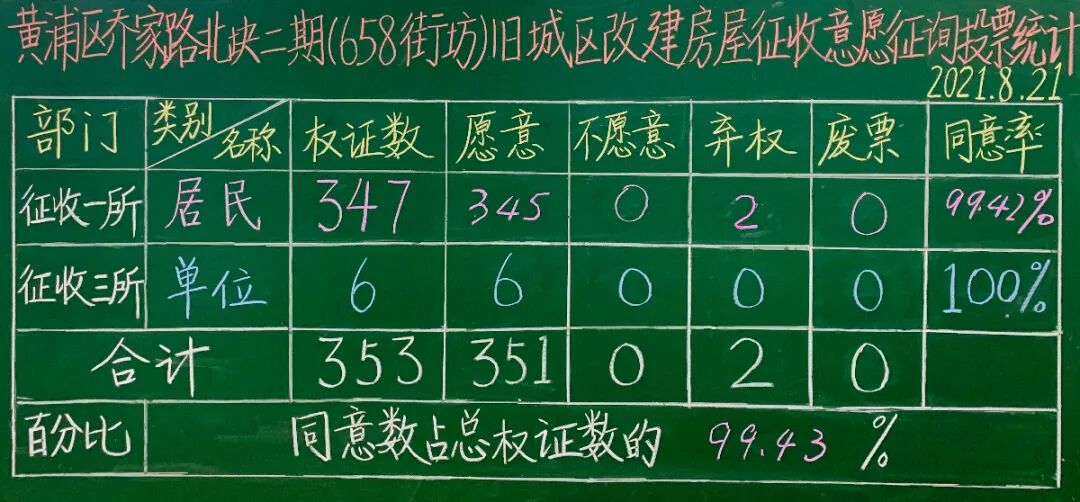 黄浦区乔家路北块二期(658街坊)旧城区改建房屋征收意愿征询投票统计
2021.8.21
部门 类别 名称 权证数 愿意 不愿意 弃权 废票 同意率
征收一所 居民 347 345 0 2 0 99.42%
征收三所 单位 6 6 0 0 0 100%
合计 353 351 0 2 0
百分比 同意数占总权证数的 99.43 %